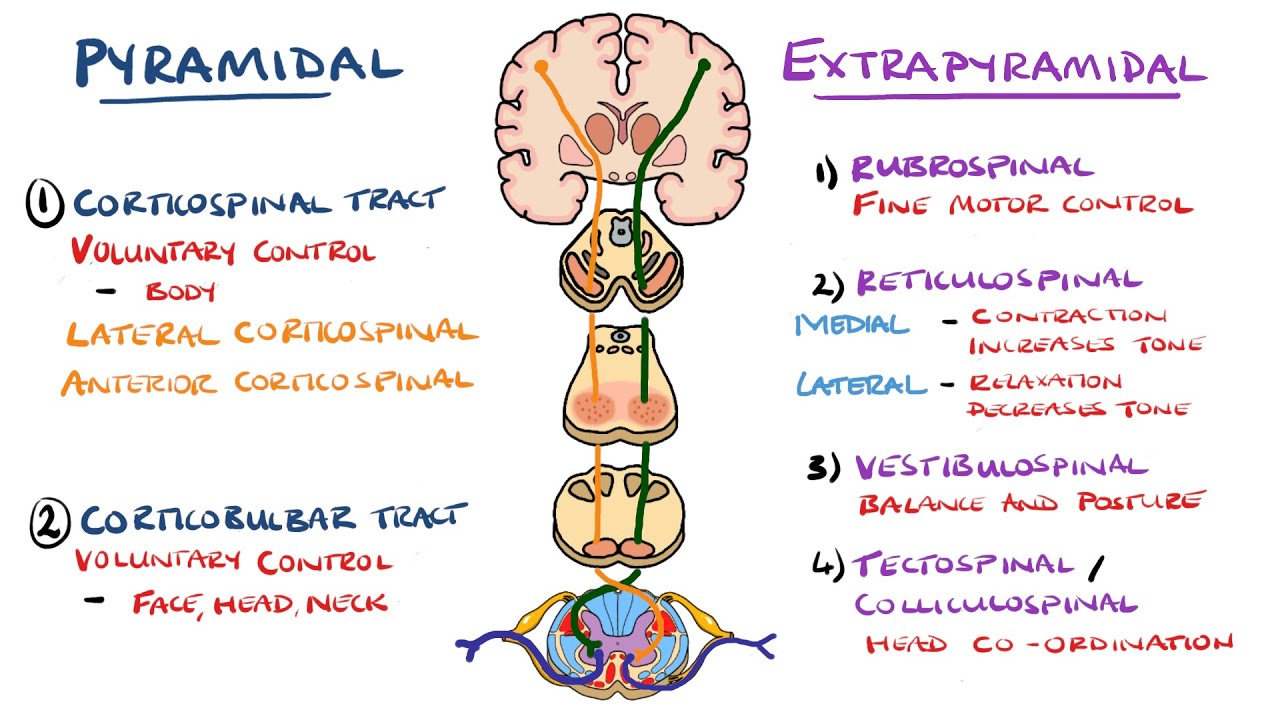 PYRAMIDAL
1 CORTICOSPINAL TRACT
VOLUNTARY CONTROL
- BODY
LATERAL CORTICOSPINAL
ANTERIOR CORTICOSPINAL
2 CORTICOBULBAR TRACT
VOLUNTARY CONTROL
- FACE, HEAD, NECK
EXTRAPYRAMIDAL
1) RUBROSPINAL
FINE MOTOR CONTROL
2) RETICULOSPINAL
MEDIAL - CONTRACTION
INCREASES TONE
LATERAL - RELAXATION
DECREASES TONE
3) VESTIBULOSPINAL
BALANCE AND POSTURE
4) TECTOSPINAL /
COLLICULOSPINAL
HEAD CO-ORDINATION